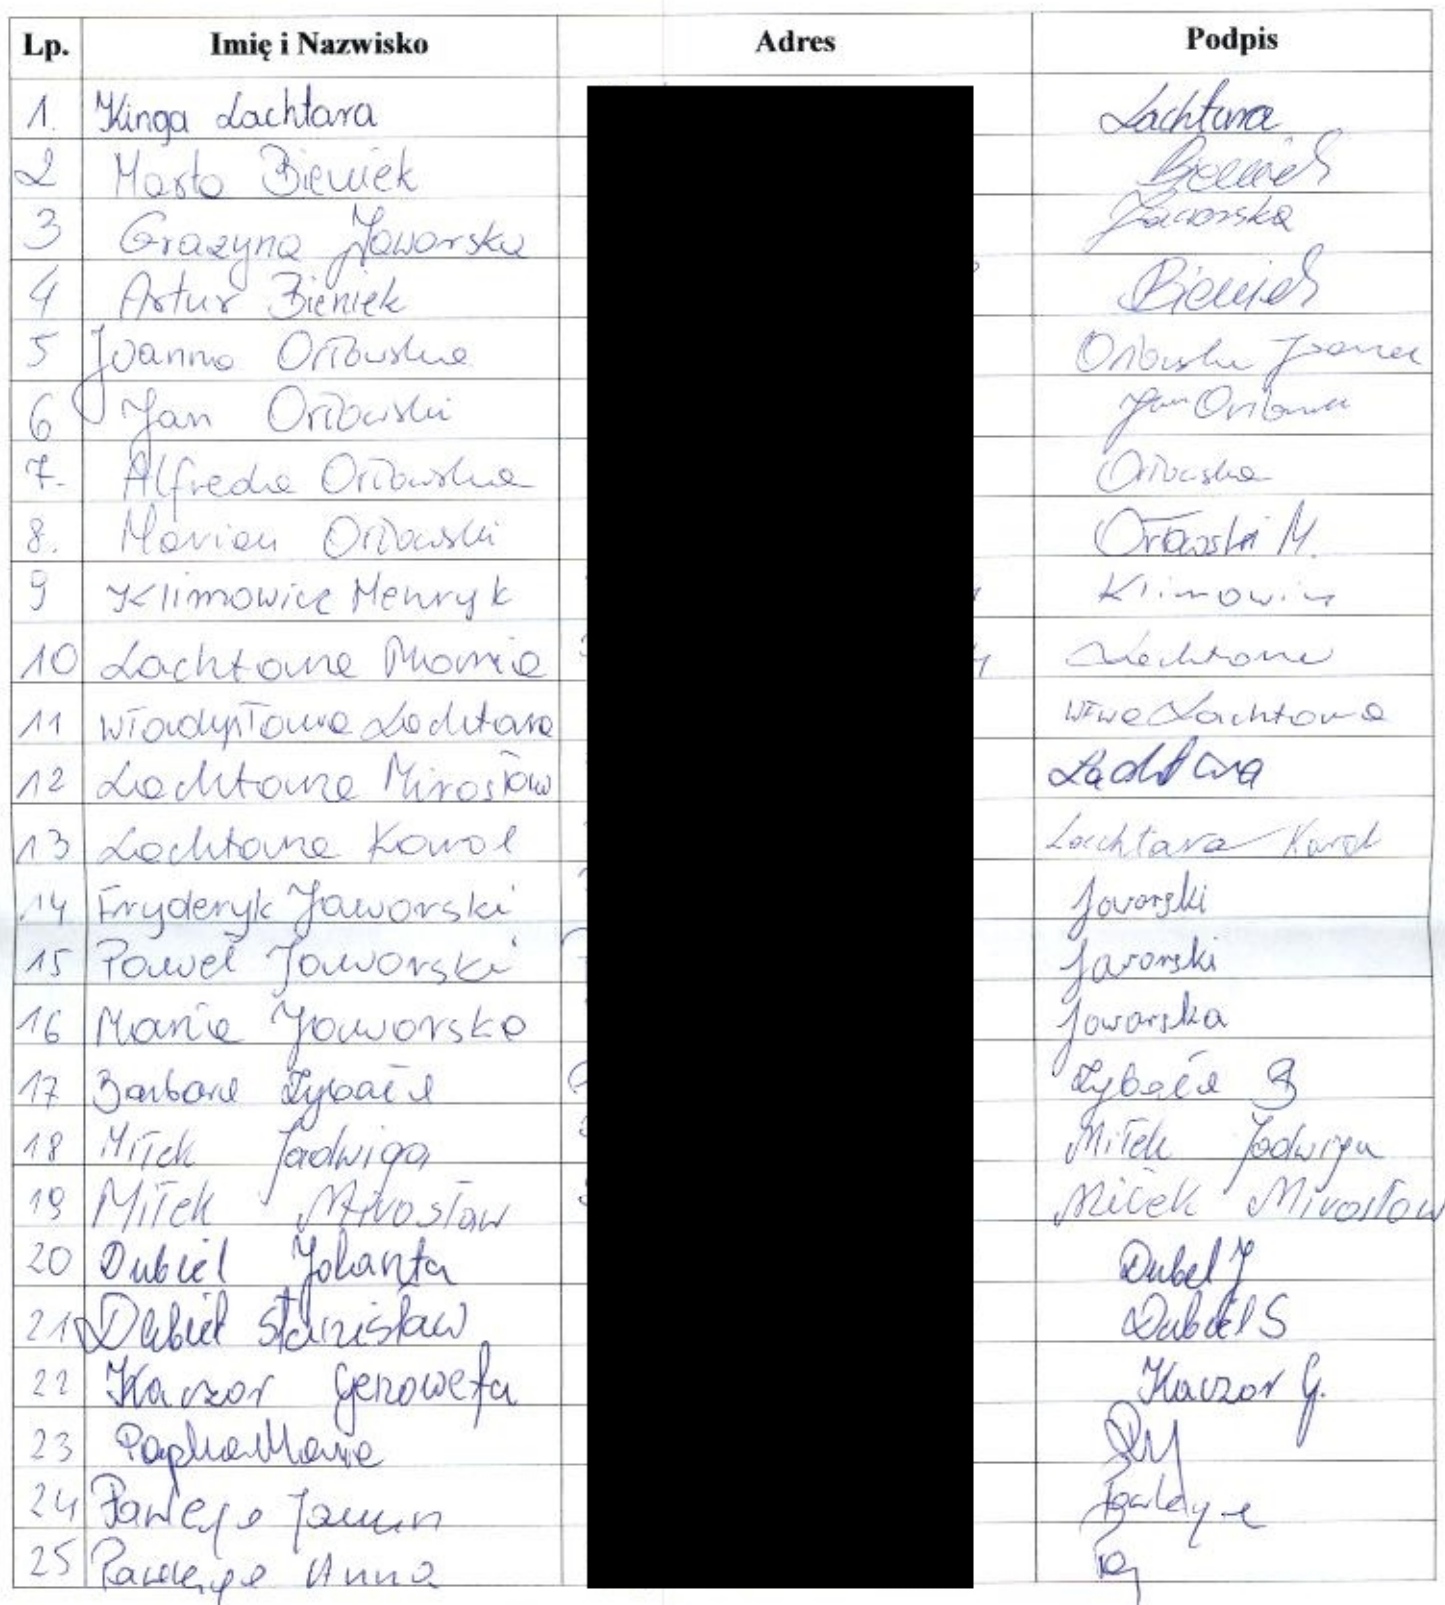 Lp. Imię i Nazwisko Adres Podpis
1. Kinga Lachtara Lachtara
2 Marta Bieniek Bieniek
3 Grażyna Jaworska Jaworska
4 Artur Bieniek Bieniek
5 Joanna Orłowska Orłowska Joanna
6 Jan Orłowski Jan Orłowski
7. Alfreda Orłowska Orłowska
8. Marian Orłowski Orłowski M.
9 Klimowicz Henryk Klimowicz
10 Lachtara Maria Lachtara
11 Władysława Lachtara Wł-wa Lachtara
12 Lachtara Mirosław Lachtara
13 Lachtara Karol Lachtara Karol
14 Fryderyk Jaworski Jaworski
15 Paweł Jaworski Jaworski
16 Maria Jaworska Jaworska
17 Barbara Zybała Zybała B
18 Miłek Jadwiga Miłek Jadwiga
19 Miłek Mirosław Miłek Mirosław
20 Dubiel Jolanta Dubiel J
21 Dubiel Stanisław Dubiel S
22 Kaczor Genowefa Kaczor G.
23 Maria
24
25 Anna